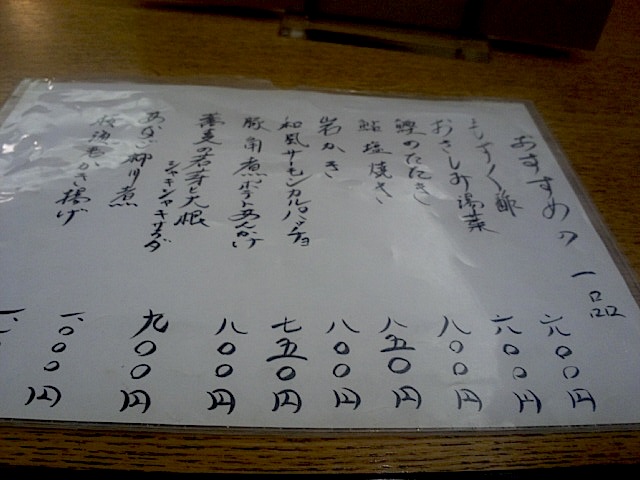 おすすめの一品
もずく酢 六〇〇円
おさしみ湯葉 六〇〇円
鰹のたたき 八〇〇円
鮎塩焼き 八五〇円
岩かき 八〇〇円
和風サーモンカルパッチョ 七五〇円
豚角煮ポテトあんかけ 八〇〇円
蕎麦の若芽と大根シャキシャキサラダ 九〇〇円
あなご柳川煮 一、〇〇〇円
かき揚げ